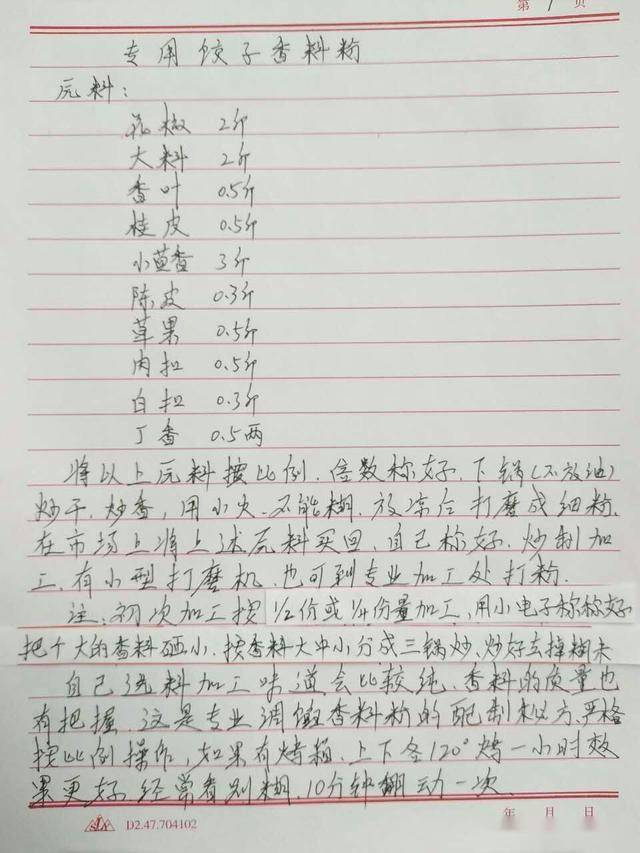 第1页
专用饺子香料粉
元料：
花椒 2斤
大料 2斤
香叶 0.5斤
桂皮 0.5斤
小茴香 3斤
陈皮 0.3斤
草果 0.5斤
肉扣 0.5斤
白扣 0.3斤
丁香 0.5两
将以上元料按比例、倍数称好、下锅(不放油)
炒干、炒香，用小火、不能糊、放凉后打磨成细粉、
在市场上将上述元料买回、自己称好、炒制加
工、有小型打磨机、也可到专业加工处打粉、
注：初次加工按1/2份或1/4份量加工，用小电子称称好
把个大的香料砸小、按香料大中小分成三锅炒、炒好去掉糊末
自己选料加工味道会比较纯、香料的质量也
有把握、这是专业调馅香料粉的配制秘方、严格
按比例操作，如果有烤箱、上下冬120°烤一小时效
果更好、经常看别糊、10分钟翻动一次、
D2.47.704102
年 月 日